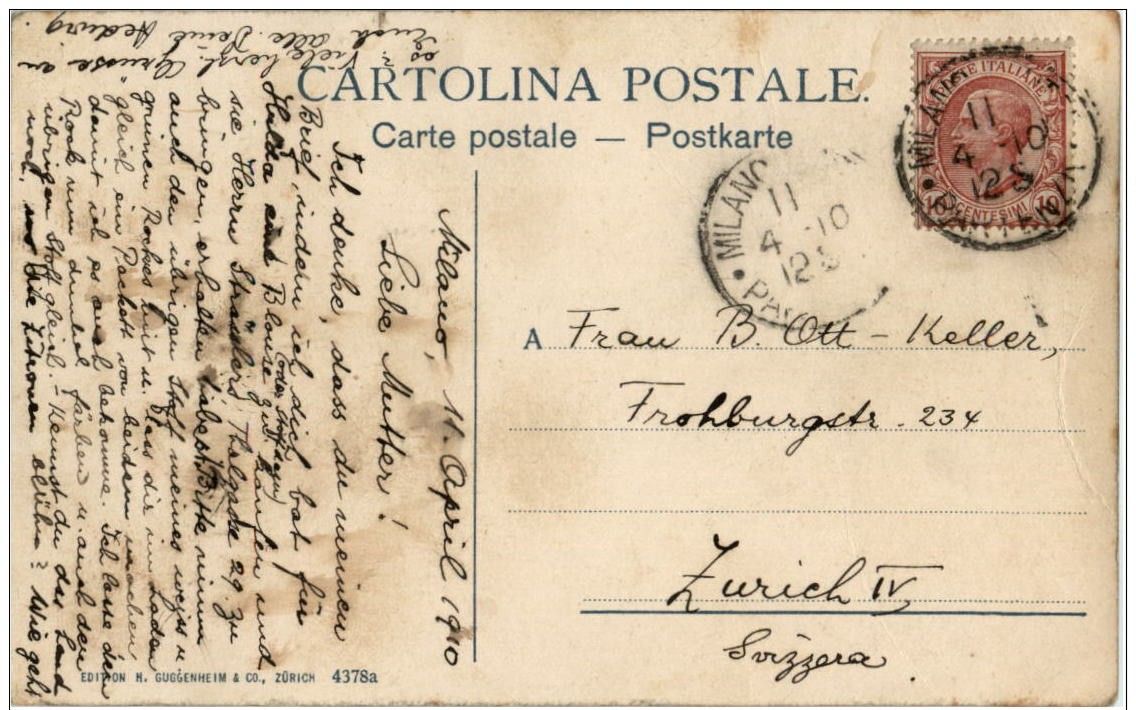 CARTOLINA POSTALE.
Carte postale — Postkarte
POSTE ITALIANE
CENTESIMI 10
MILANO
11
4 - 10
12 S
MILANO
11
4 - 10
12 S
A Frau B. Ott - Keller,
Frohburgstr. 234
Zürich IV
Svizzera
Milano, 11. April 1910
Liebe Mutter!
Ich denke, dass du meinen
Brief, indem ich dich bat für
Hulda eine Blouse zu kaufen und
(oder Stoff dazu)
sie Herrn Strässlers, Thalgasse 29. zu
bringen, erhalten habest. Bitte nimm
auch den übrigen Stoff meines weiss u
grünen Rockes mit u. lass dir im Laden
gleich ein Packett von beidem machen,
damit ich es auch bekomme. Ich lasse den
Rock nun dunkel färben u. auch den
übrigen Stoff gleich. - Kennst du das Land
noch, wo die Zitronen blühn? Wie geht
es? Viele herzl. Grüsse an
Euch alle. Deine Hedwig.
EDITION H. GUGGENHEIM & CO., ZÜRICH 4378a